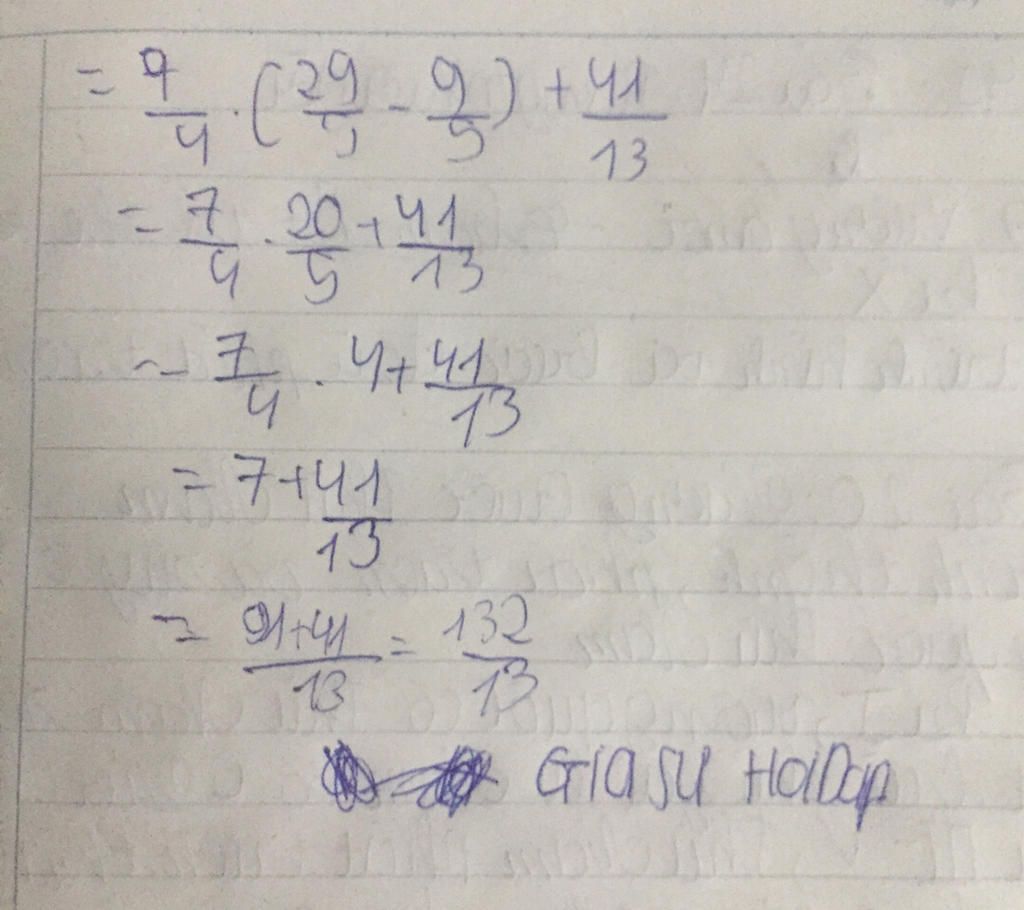 = 7/4 . (29/5 - 9/5) + 41/13
= 7/4 . 20/5 + 41/13
= 7/4 . 4 + 41/13
= 7 + 41/13
= 91+41/13 = 132/13
GIASU HoiDap